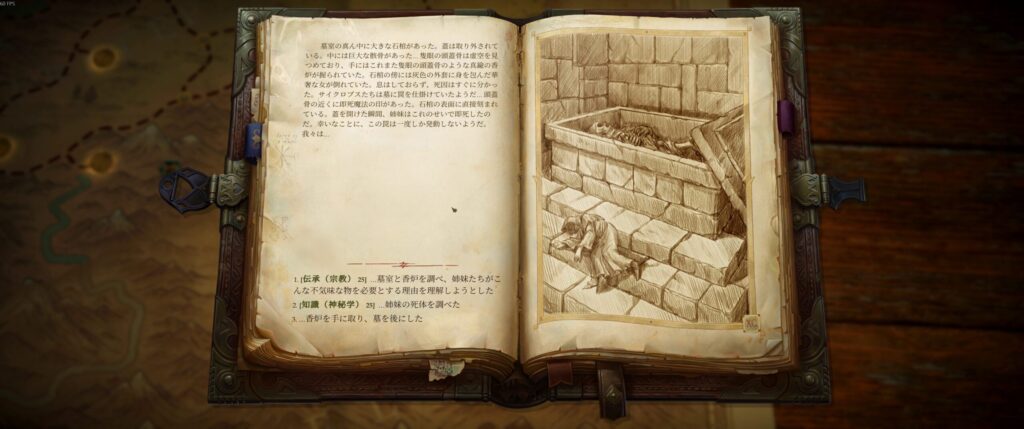 60 FPS
墓室の真ん中に大きな石棺があった。蓋は取り外されて
いる。中には巨大な骸骨があった…隻眼の頭蓋骨は虚空を見
つめており、手にはこれまた隻眼の頭蓋骨のような真鍮の香
炉が握られていた。石棺の傍には灰色の外套に身を包んだ華
奢な女が倒れていた。息はしておらず、死因はすぐに分かっ
た。サイクロプスたちは墓に罠を仕掛けていたようだ…頭蓋
骨の近くに即死魔法の印があった。石棺の表面に直接刻まれ
ている。蓋を開けた瞬間、姉妹はこれのせいで即死したの
だ。幸いなことに、この罠は一度しか発動しないようだ。
我々は…
1. [伝承（宗教） 25] …墓室と香炉を調べ、姉妹たちがこ
んな不気味な物を必要とする理由を理解しようとした
2. [知識（神秘学） 25] …姉妹の死体を調べた
3. …香炉を手に取り、墓を後にした